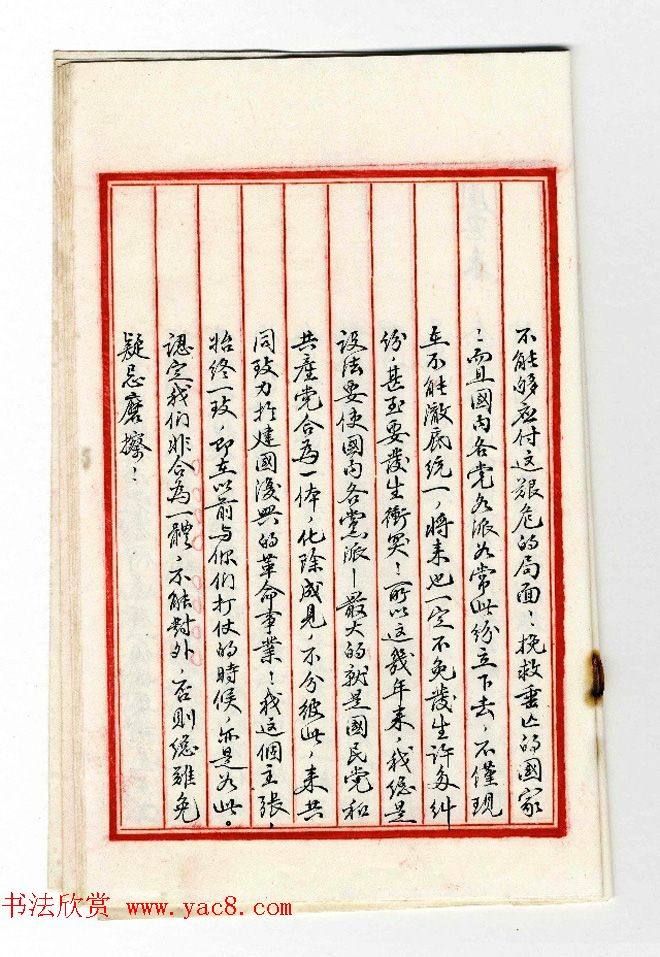 不能够应付这艰危的局面！挽救垂亡的國家
！而且國内各党各派如常此纷立下去，不僅現
在不能澈底统一，將来也一定不免發生许多糾
纷，甚至要發生衝突！所以这幾年来，我總是
设法要使國内各黨派—最大的就是國民党和
共產党合為一体，化除成見，不分彼此，来共
同致力於建國復興的革命事業！我这個主張，
始终一致，即在以前与你们打仗的時候，亦是如此。
認定我们非合為一體，不能對外，否則總難免
疑忌磨擦！
书法欣赏 www.yac8.com